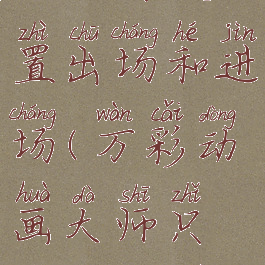 zhì chū chǎng hé jìn
置出场和进
chǎng wàn cǎi dòng
场(万彩动
huà dà shī zhǐ
画大师只